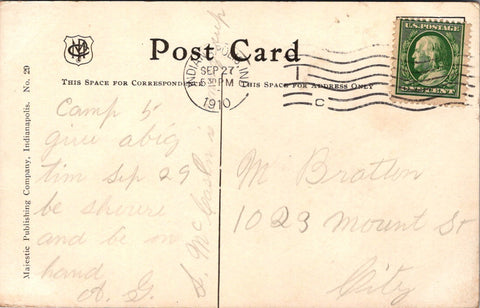 Post Card
THIS SPACE FOR CORRESPONDENCE
THIS SPACE FOR ADDRESS ONLY
SEP 27
PM
1910
IND.
C
U.S. POSTAGE
ONE CENT
Majestic Publishing Company, Indianapolis. No. 29
Camp 5
give a big
tim Sep 29
be shure
and be on
hand
A. G.
M Bratten
1023 Mount St
City